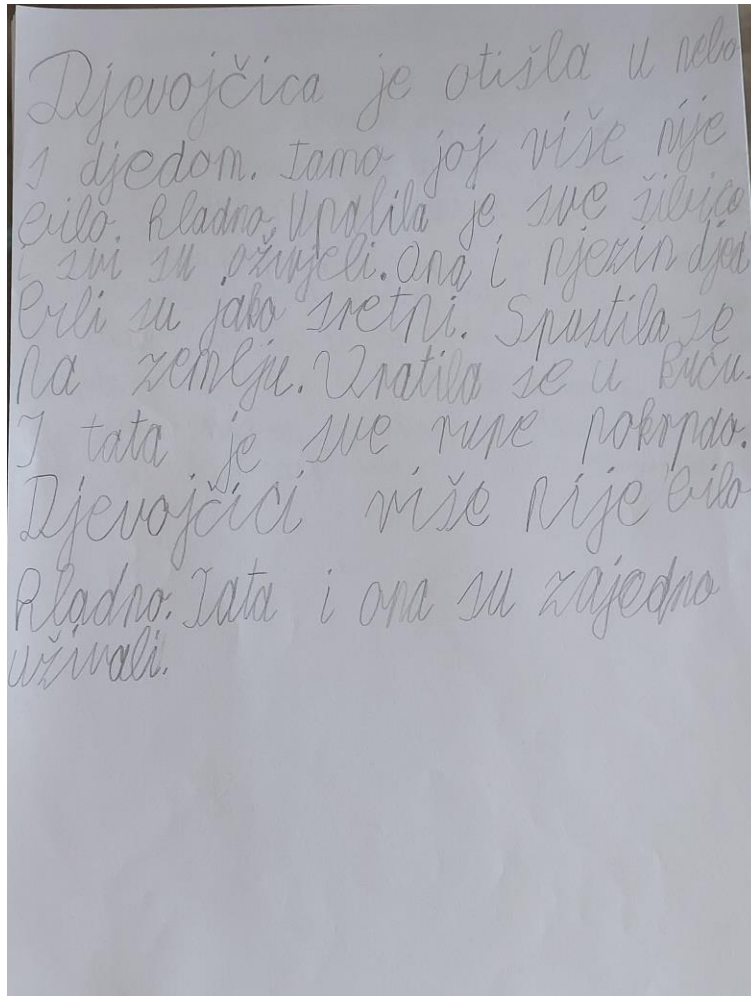 Djevojčica je otišla u nebo
s djedom. Tamo joj više nije
bilo hladno. Upalila je sve šibice
i svi su oživjeli. Ona i njezin djed
bili su jako sretni. Spustila se
na zemlju. Vratila se u kuću.
I tata je sve rupe pokrpao.
Djevojčici više nije bilo
hladno. Tata i ona su zajedno
uživali.